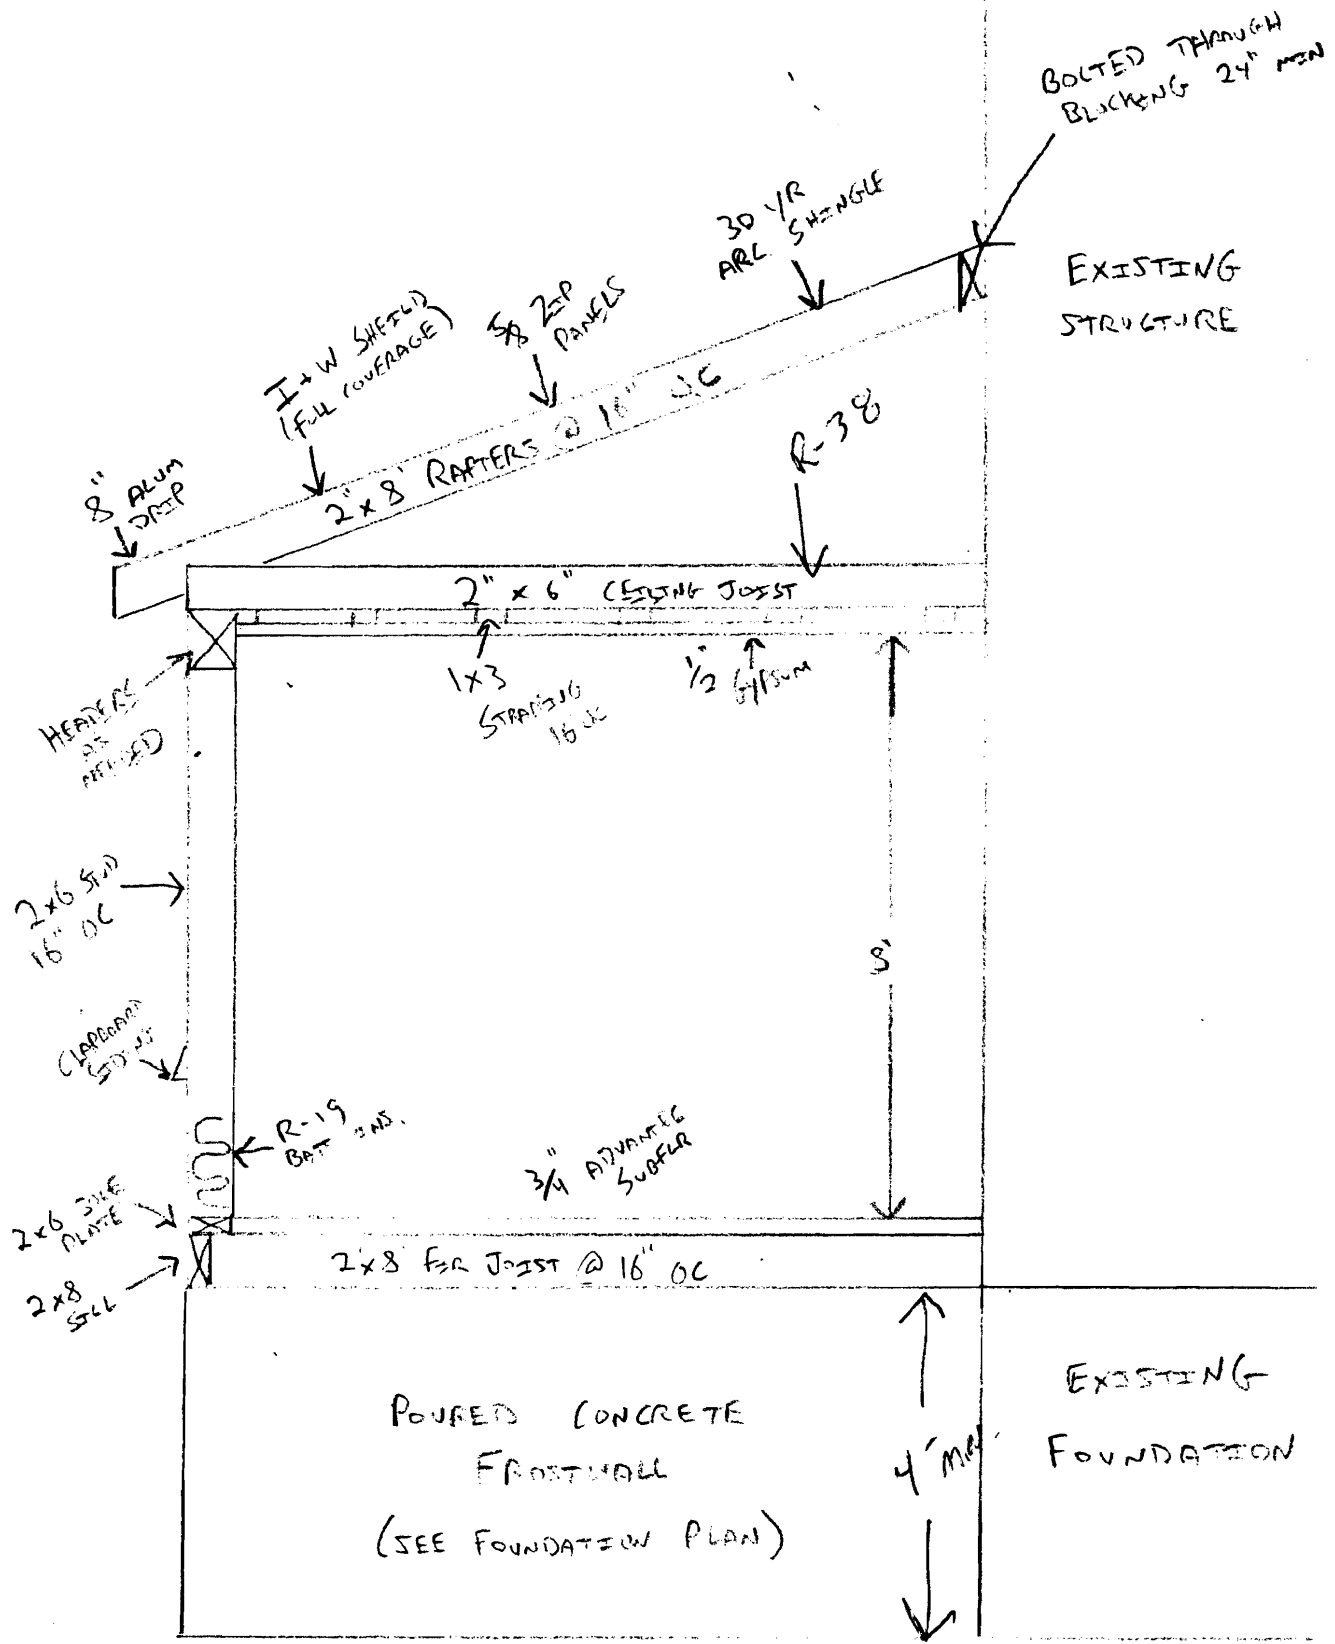 BOLTED THROUGH
BLOCKING 24" MIN
30 YR
ARC SHINGLE
EXISTING
STRUCTURE
5/8 ZIP
PANELS
I+W SHEILD
(FULL COVERAGE)
2" x 8' RAFTERS @ 16" OC
R-38
8" ALUM
DRIP
2" x 6" CEILING JOIST
1x3
STRAPING
16 OC
1/2" GYPSUM
HEADERS
AS
NEEDED
2x6 STUD
16" OC
8'
CLAPBOARD
SIDING
R-19
BATT INS.
3/4" ADVANTEC
SUBFLR
2x6 SOLE
PLATE
2x8
SILL
2x8 FLR JOIST @ 16" OC
POURED CONCRETE
FROSTWALL
(SEE FOUNDATION PLAN)
4' MIN
EXISTING
FOUNDATION